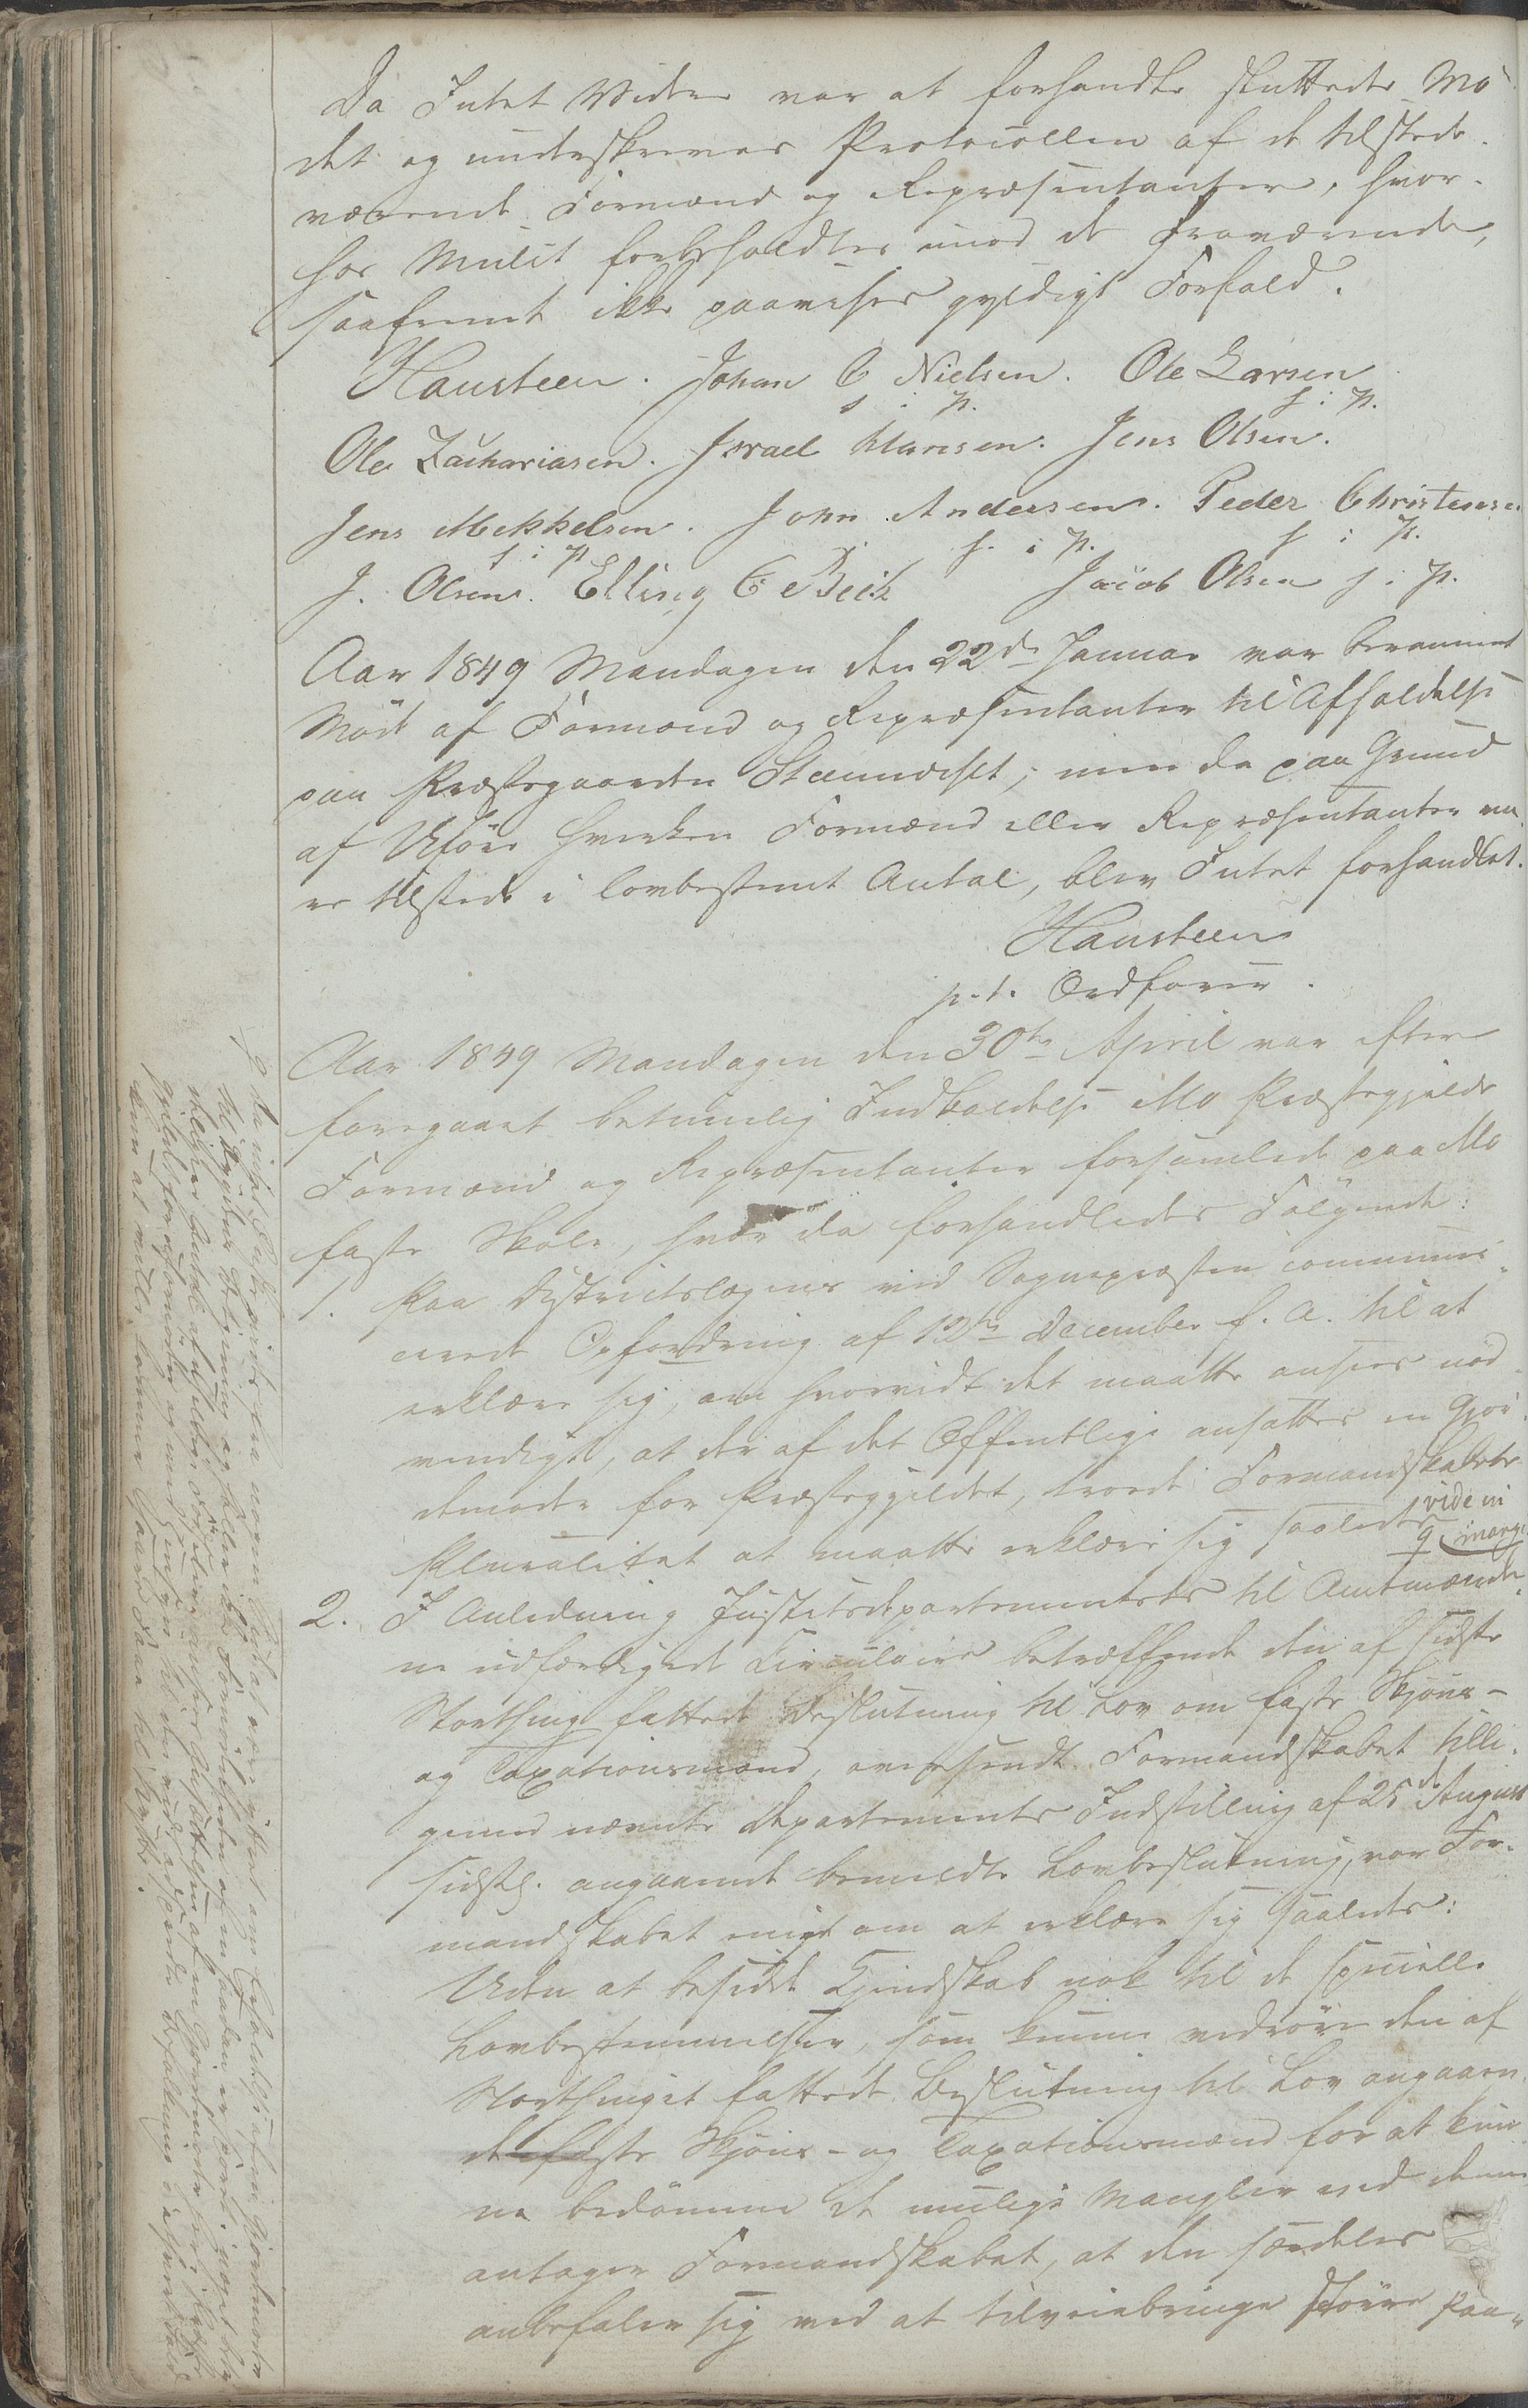 Da Intet Videre var at forhandle sluttedes Mö-
det og underskreves Protocollen af de tilstede-
værende Formænd og Repræsentanter, hvor-
hos Mulct forbeholdtes imod de Fraværende,
saafremt ikke paavises gyldigt Forfald.
Hansteen. Johan C Nielsen. Ole Larsen
s i p. s: p.
Ole Zachariasen. Israel Hansen. Jens Olsen.
Jens Mikkelsen. John Andersen. Peder Christensen
s i p s. i p. s i p.
J. Olsen. Elling C Bech Jacob Olsen s i p.
Aar 1849 Mandagen den 22de Januar var berammet
Möde af Formænd og Repræsentanter til Afholdelse
paa Præstegaarden Steenneset; men da paa Grund
af Uföre hverken Formænd eller Repræsentanter va-
re tilstede i lovbestemt Antal, blev Intet forhandlet.
Hansteen
p. t. Ordförer.
Aar 1849 Mandagen den 30te April var efter
foregaaet betimelig Indkaldelse Mo Præstegjelds
Formænd og Repræsentanter forsamlede paa Mo
faste Skole, hvor da forhandledes Fölgende:
1. Paa Districtslægens ved Sognepræsten communi-
cerede Opfordring af 12te December f. A. til at
erklære sig, om hvorvidt det maatte ansees nöd-
vendigt, at der af det Offentlige ansættes en Gjor-
demoder for Præstegjeldet, troede Formandskabets
Pluralitet at maatte erklære sig saaledes vide in
margi
2. I Anledning Justitsdepartementets til Amtmænde-
ne udfærdigede Circulaire betræffende den af sidste
Storthing fattede Beslutning til Lov om faste Skjöns-
og Taxationsmænd, oversendt Formandskabet tilli-
gemed nævnte Departements Indstilling af 25de August
sidstl. angaaende bemeldte Lovbeslutning, var For-
mandskabet enigt om at erklære sig saaledes:
Uden at besidde Kjendskab nok til de specielle
Lovbestemmelser, som kunne vedröre den af
Storthinget fattede Beslutning til Lov angaaen-
de faste Skjöns- og Taxationsmænd for at kun-
ne bedömme de mulige Mangler ved denne
antager Formandskabet, at den særdeles
anbefaler sig ved at tilveiebringe större Paa-